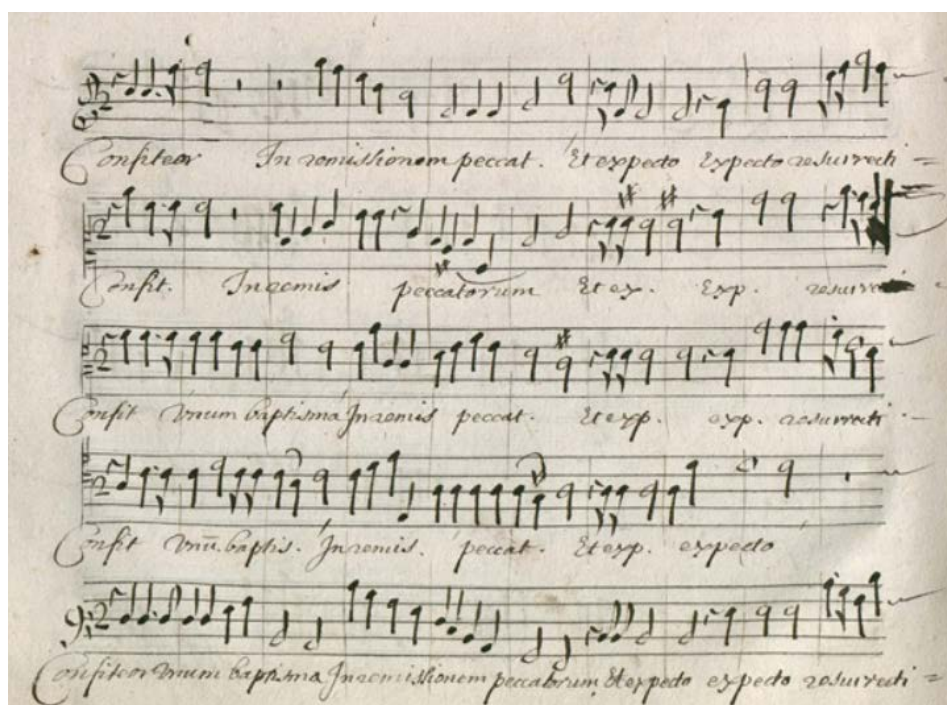 Confiteor In remissionem peccat. Et expecto Expecto resurrecti =
Confit. In remis peccatorum Et ex. Exp. resurre
Confit Vnum baptisma In remis peccat. Et exp. exp. resurrecti -
Confit Vnū. baptis. In remis. peccat. Et exp. expecto
Confiteor Vnum baptisma In remissionem peccatorum Et expecto expecto resurrecti =